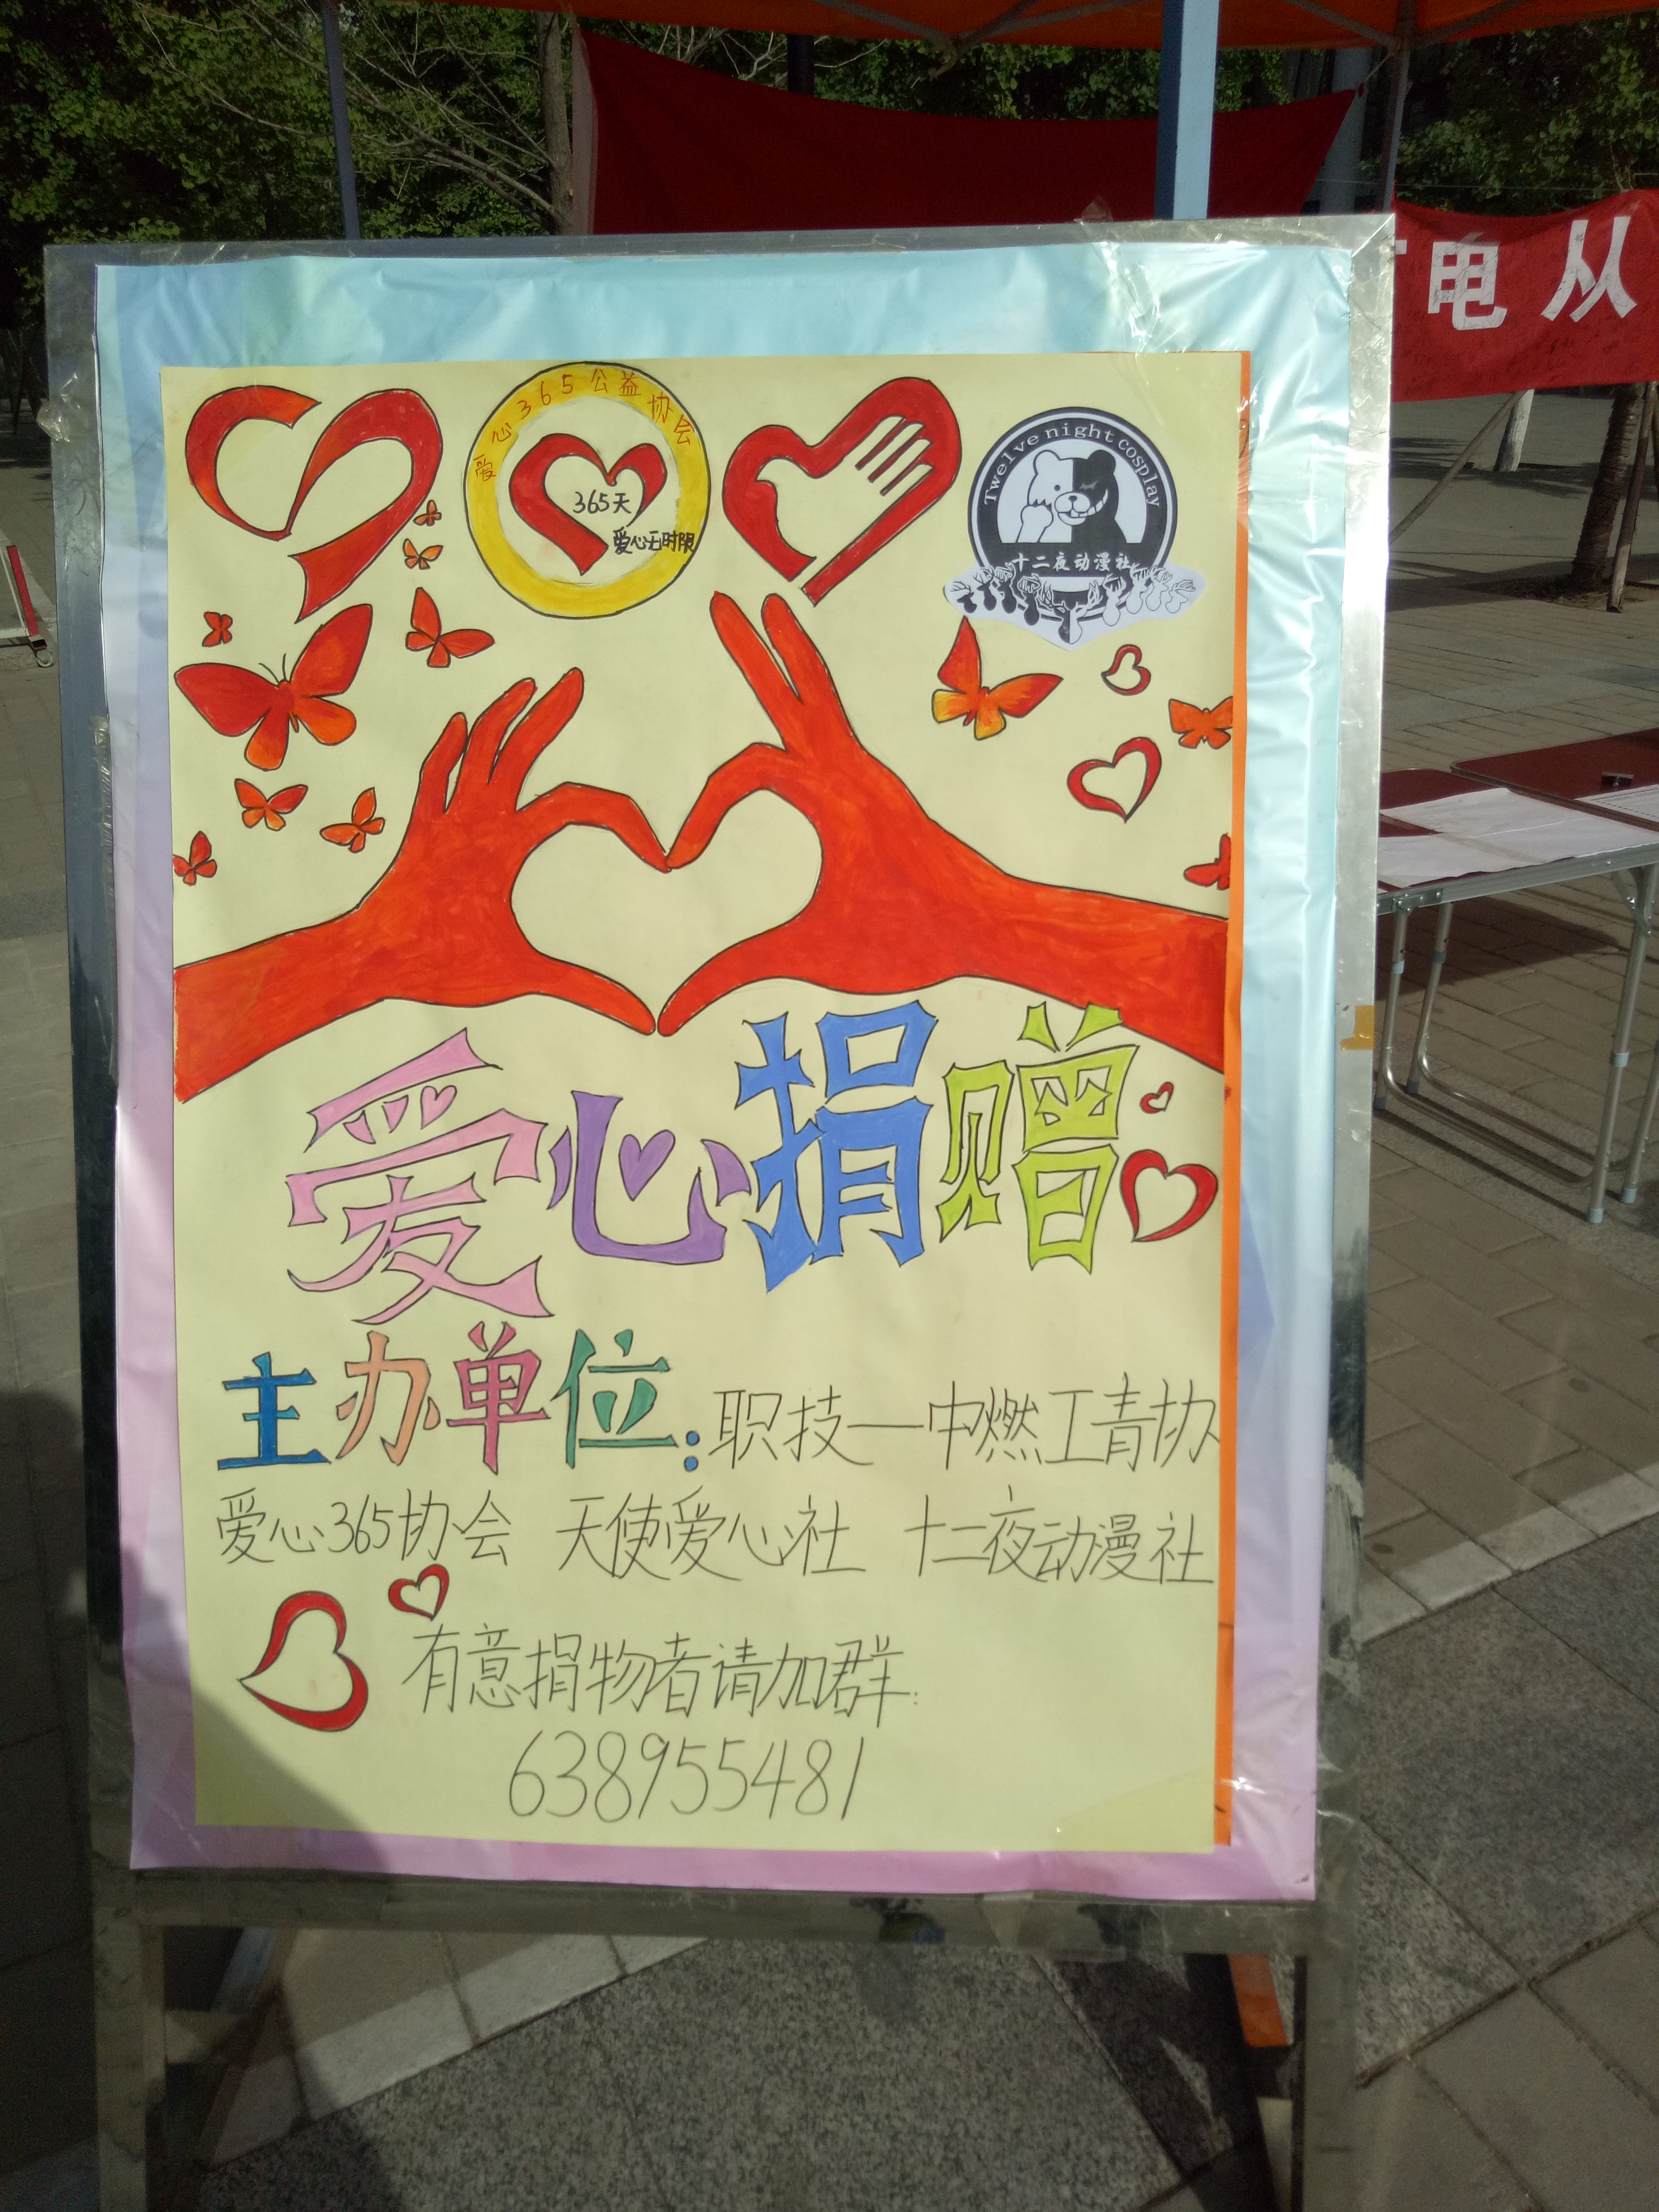 电从
爱心365公益协会
365天
爱心无时限
Twelve night cosplay
十二夜动漫社
爱心捐赠
主办单位:职技一中燃工青协
爱心365协会 天使爱心社 十二夜动漫社
有意捐物者请加群:
638955481